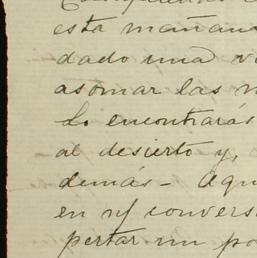 esta mañana
dado una v
asomar las n
lo encontrarás
al desierto y,
demás- Aqu
en n/ convers
pertar un po